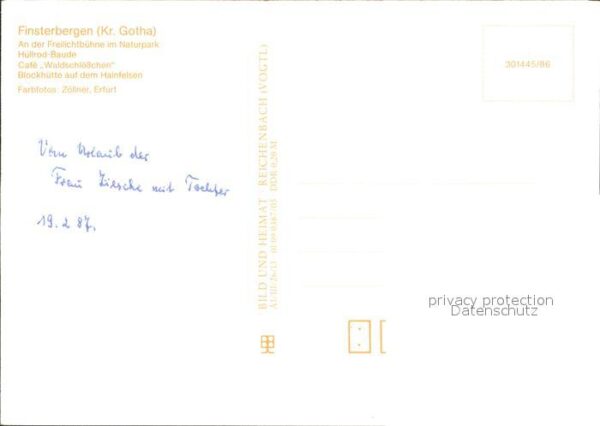 Finsterbergen (Kr. Gotha)
An der Freilichtbühne im Naturpark
Hüllrod-Baude
Café „Waldschlößchen"
Blockhütte auf dem Hainfelsen
Farbfotos: Zöllner, Erfurt
301445/86
Vom Urlaub der
Frau mit Tochter
19. 2. 87.
BILD UND HEIMAT REICHENBACH (VOGTL)
A1/III/26/13 01 09 0387/05 DDR 0,20 M
privacy protection
Datenschutz